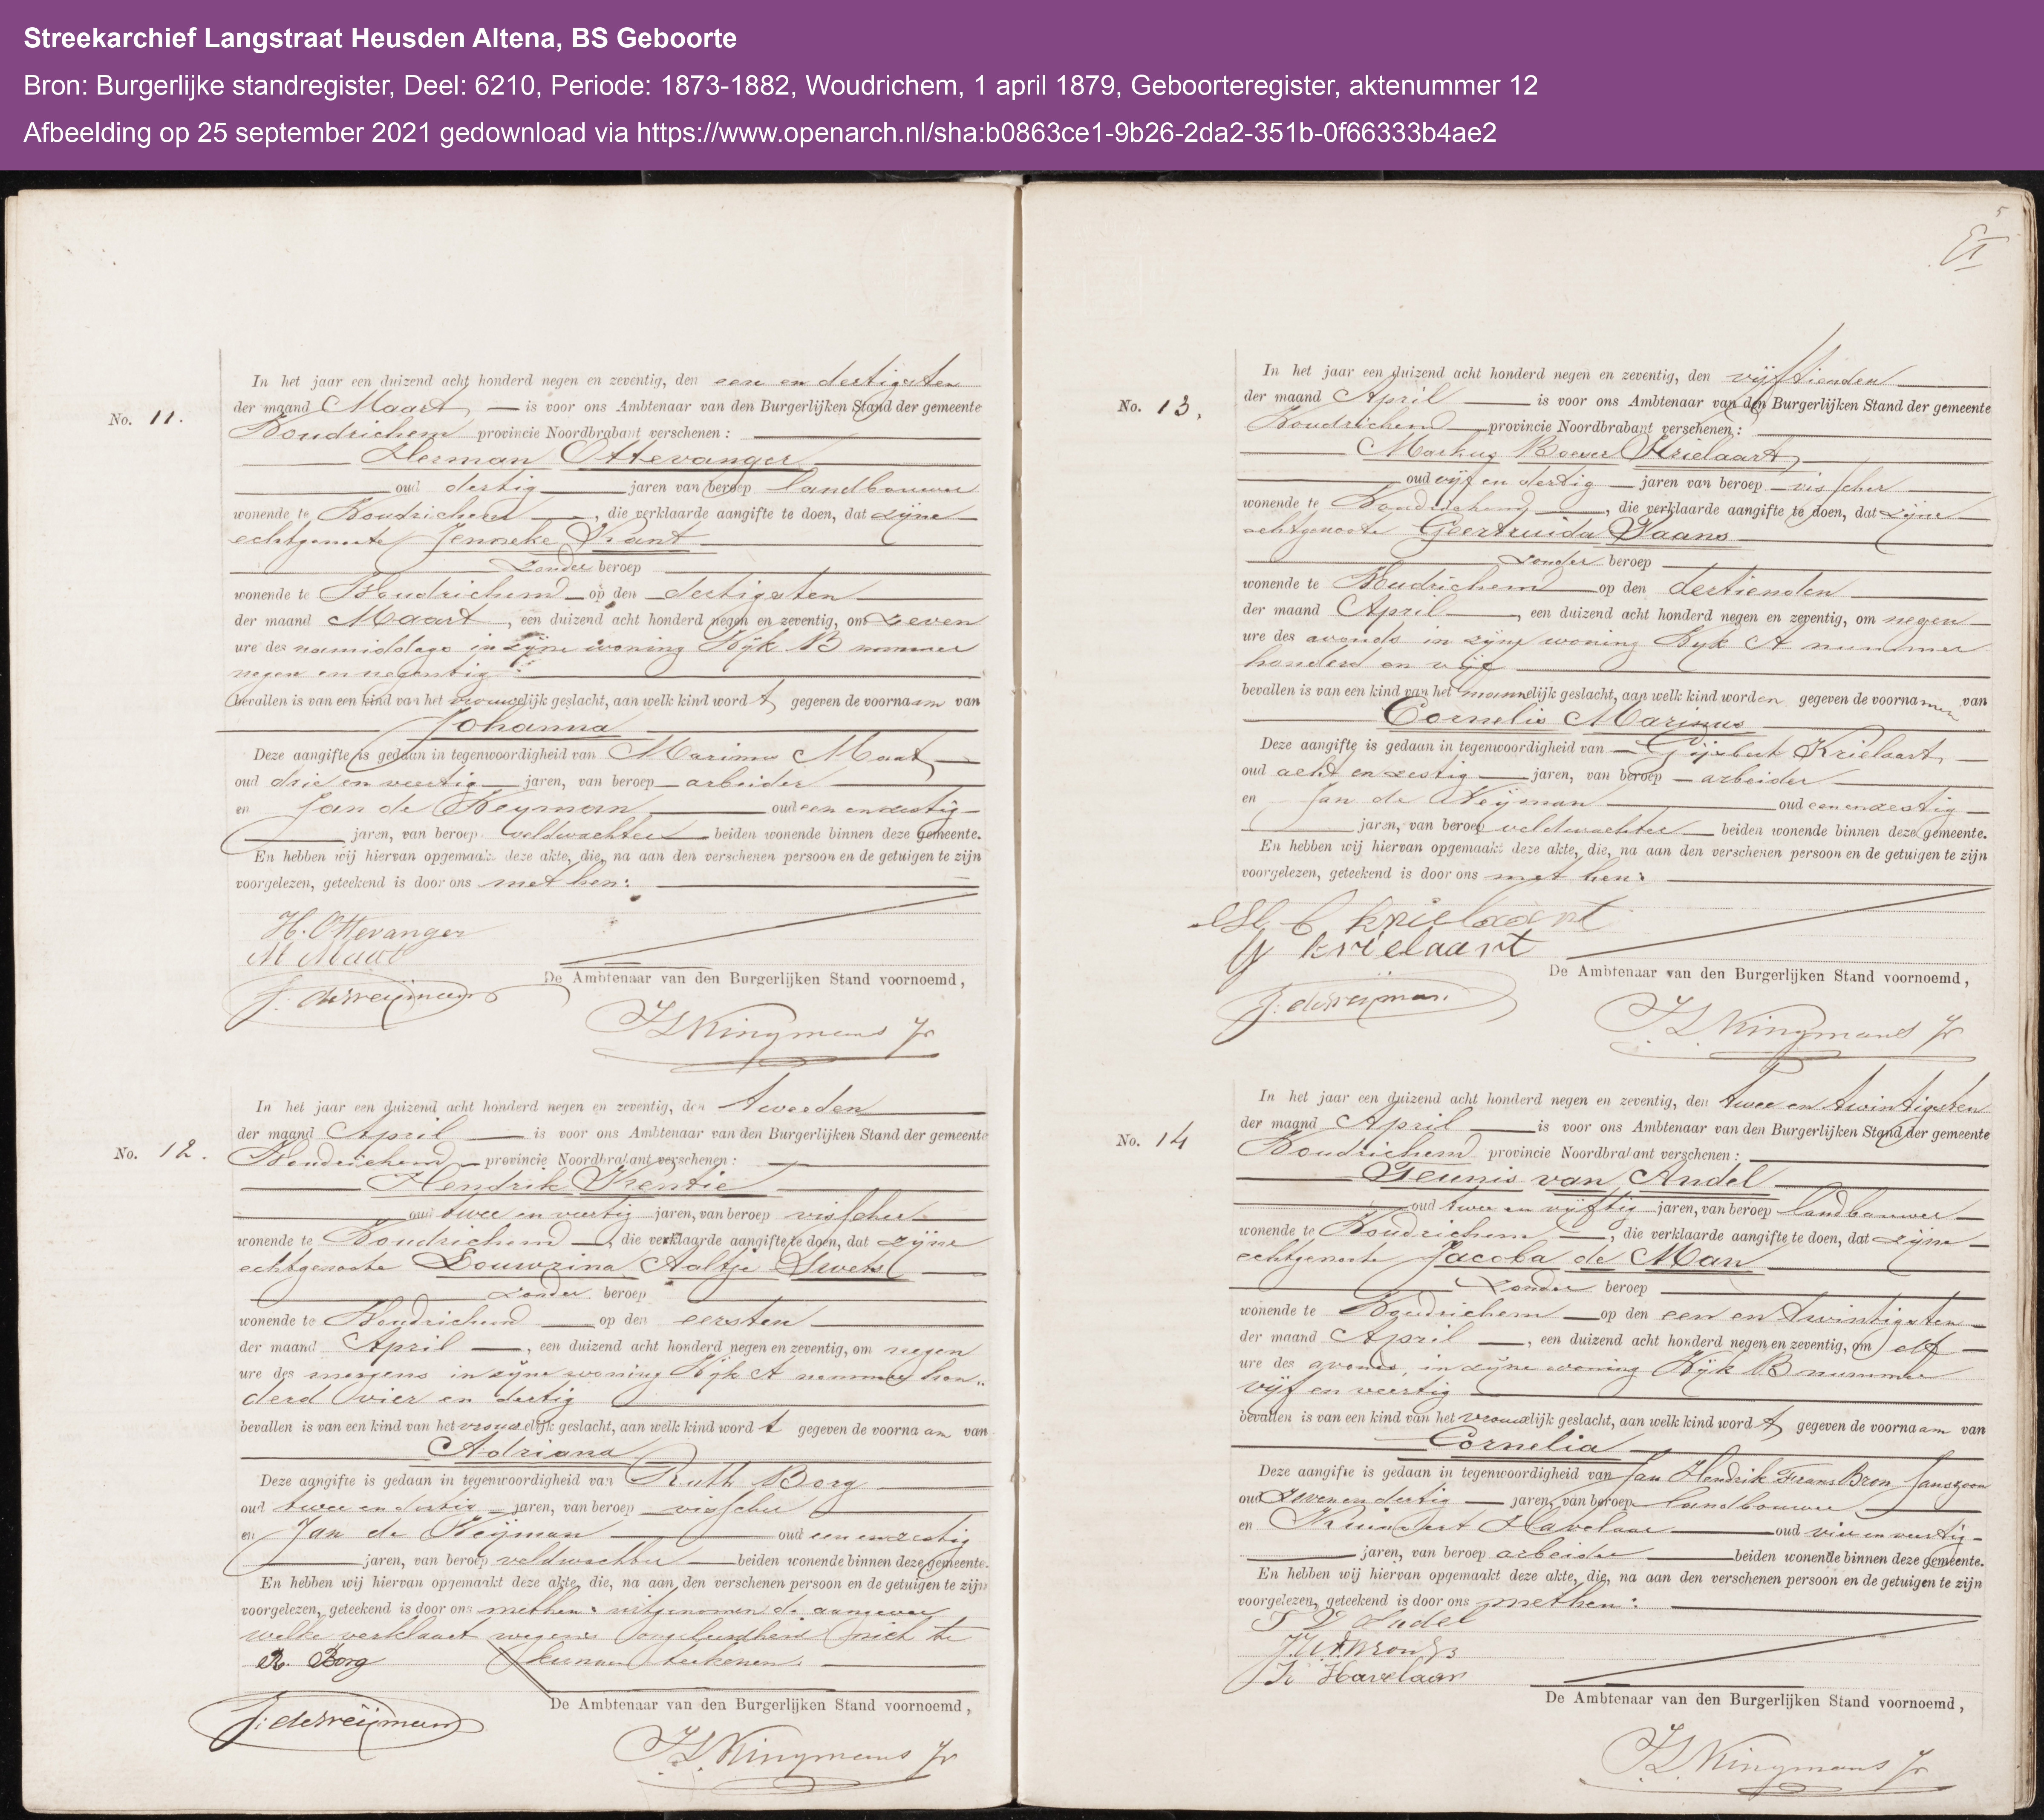 Streekarchief Langstraat Heusden Altena, BS Geboorte
Bron: Burgerlijke standregister, Deel: 6210, Periode: 1873-1882, Woudrichem, 1 april 1879, Geboorteregister, aktenummer 12
Afbeelding op 25 september 2021 gedownload via https://www.openarch.nl/sha:b0863ce1-9b26-2da2-351b-0f66333b4ae2
In het jaar een duizend acht honderd negen en zeventig, den een en dertigsten
No. 11. der maand Maart is voor ons Ambtenaar van den Burgerlijken Stand der gemeente
Woudrichem provincie Noordbrabant verschenen:
Herman Ottevanger
oud dertig jaren van beroep landbouwer
wonende te Woudrichem, die verklaarde aangifte te doen, dat zijne
echtgenoote Jenneke Krant
zonder beroep
wonende te Woudrichem op den dertigsten
der maand Maart, een duizend acht honderd negen en zeventig, om zeven
ure des namiddags in zijne woning Wijk B nummer
negen en negentig
bevallen is van een kind van het vrouwelijk geslacht, aan welk kind wordt gegeven de voornaam van
Johanna
Deze aangifte is gedaan in tegenwoordigheid van Marinus Maat
oud drie en veertig jaren, van beroep arbeider
en Jan de Weyman oud een en zestig
jaren, van beroep veldwachter beiden wonende binnen deze gemeente.
En hebben wij hiervan opgemaakt deze akte, die, na aan den verschenen persoon en de getuigen te zijn
voorgelezen, geteekend is door ons met hen:
H. Ottevanger
M Maat
De Ambtenaar van den Burgerlijken Stand voornoemd,
In het jaar een duizend acht honderd negen en zeventig, den tweeden
No. 12. der maand April is voor ons Ambtenaar van den Burgerlijken Stand der gemeente
Woudrichem provincie Noordbrabant verschenen:
Hendrik Kentie
oud twee en veertig jaren, van beroep visscher
wonende te Woudrichem, die verklaarde aangifte te doen, dat zijne
echtgenoote Louwrina Aaltje Swets
zonder beroep
wonende te Woudrichem op den eersten
der maand April, een duizend acht honderd negen en zeventig, om negen
ure des morgens in zijne woning Wijk A nummer hon„
derd vier en dertig
bevallen is van een kind van het vrouwelijk geslacht, aan welk kind wordt gegeven de voornaam van
Adriana
Deze aangifte is gedaan in tegenwoordigheid van Ruth Borg
oud twee en dertig jaren, van beroep visscher
en Jan de Weijman oud een en zestig
jaren, van beroep veldwachter beiden wonende binnen deze gemeente.
En hebben wij hiervan opgemaakt deze akte, die, na aan den verschenen persoon en de getuigen te zijn
voorgelezen, geteekend is door ons met hen: uitgenomen de aangever
welke verklaart wegens ongeleerdheid niet te
R. Borg kunnen teekenen.
De Ambtenaar van den Burgerlijken Stand voornoemd,
5
In het jaar een duizend acht honderd negen en zeventig, den vijftienden
No. 13. der maand April is voor ons Ambtenaar van den Burgerlijken Stand der gemeente
Woudrichem provincie Noordbrabant verschenen:
Markus Boever Krielaart
oud vijf en dertig jaren van beroep visscher
wonende te Woudrichem, die verklaarde aangifte te doen, dat zijne
echtgenoote Geertruida Vaans
zonder beroep
wonende te Woudrichem op den dertienden
der maand April, een duizend acht honderd negen en zeventig, om negen
ure des avonds in zijne woning Wijk A nummer
honderd en vijf
bevallen is van een kind van het mannelijk geslacht, aan welk kind worden gegeven de voornamen van
Cornelis Marinus
Deze aangifte is gedaan in tegenwoordigheid van Gijsbert Krielaart
oud acht en zestig jaren, van beroep arbeider
en Jan de Weijman oud een en zestig
jaren, van beroep veldwachter beiden wonende binnen deze gemeente.
En hebben wij hiervan opgemaakt deze akte, die, na aan den verschenen persoon en de getuigen te zijn
voorgelezen, geteekend is door ons met hen:
M B krielaart
G krielaart
De Ambtenaar van den Burgerlijken Stand voornoemd,
In het jaar een duizend acht honderd negen en zeventig, den twee en twintigsten
No. 14 der maand April is voor ons Ambtenaar van den Burgerlijken Stand der gemeente
Woudrichem provincie Noordbrabant verschenen:
Teunis van Andel
oud twee en vijftig jaren, van beroep landbouwer
wonende te Woudrichem, die verklaarde aangifte te doen, dat zijne
echtgenoote Jacoba de Man
zonder beroep
wonende te Woudrichem op den een en twintigsten
der maand April, een duizend acht honderd negen en zeventig, om elf
ure des avonds, in zijne woning Wijk B nummer
vijf en veertig
bevallen is van een kind van het vrouwelijk geslacht, aan welk kind wordt gegeven de voornaam van
Cornelia
Deze aangifte is gedaan in tegenwoordigheid van Jan Hendrik Frans Bron Janszoon
oud zeven en dertig jaren, van beroep landbouwer
en Havelaar oud vier en veertig
jaren, van beroep arbeider beiden wonende binnen deze gemeente.
En hebben wij hiervan opgemaakt deze akte, die, na aan den verschenen persoon en de getuigen te zijn
voorgelezen, geteekend is door ons met hen:
T V Andel
K Havelaar
De Ambtenaar van den Burgerlijken Stand voornoemd,